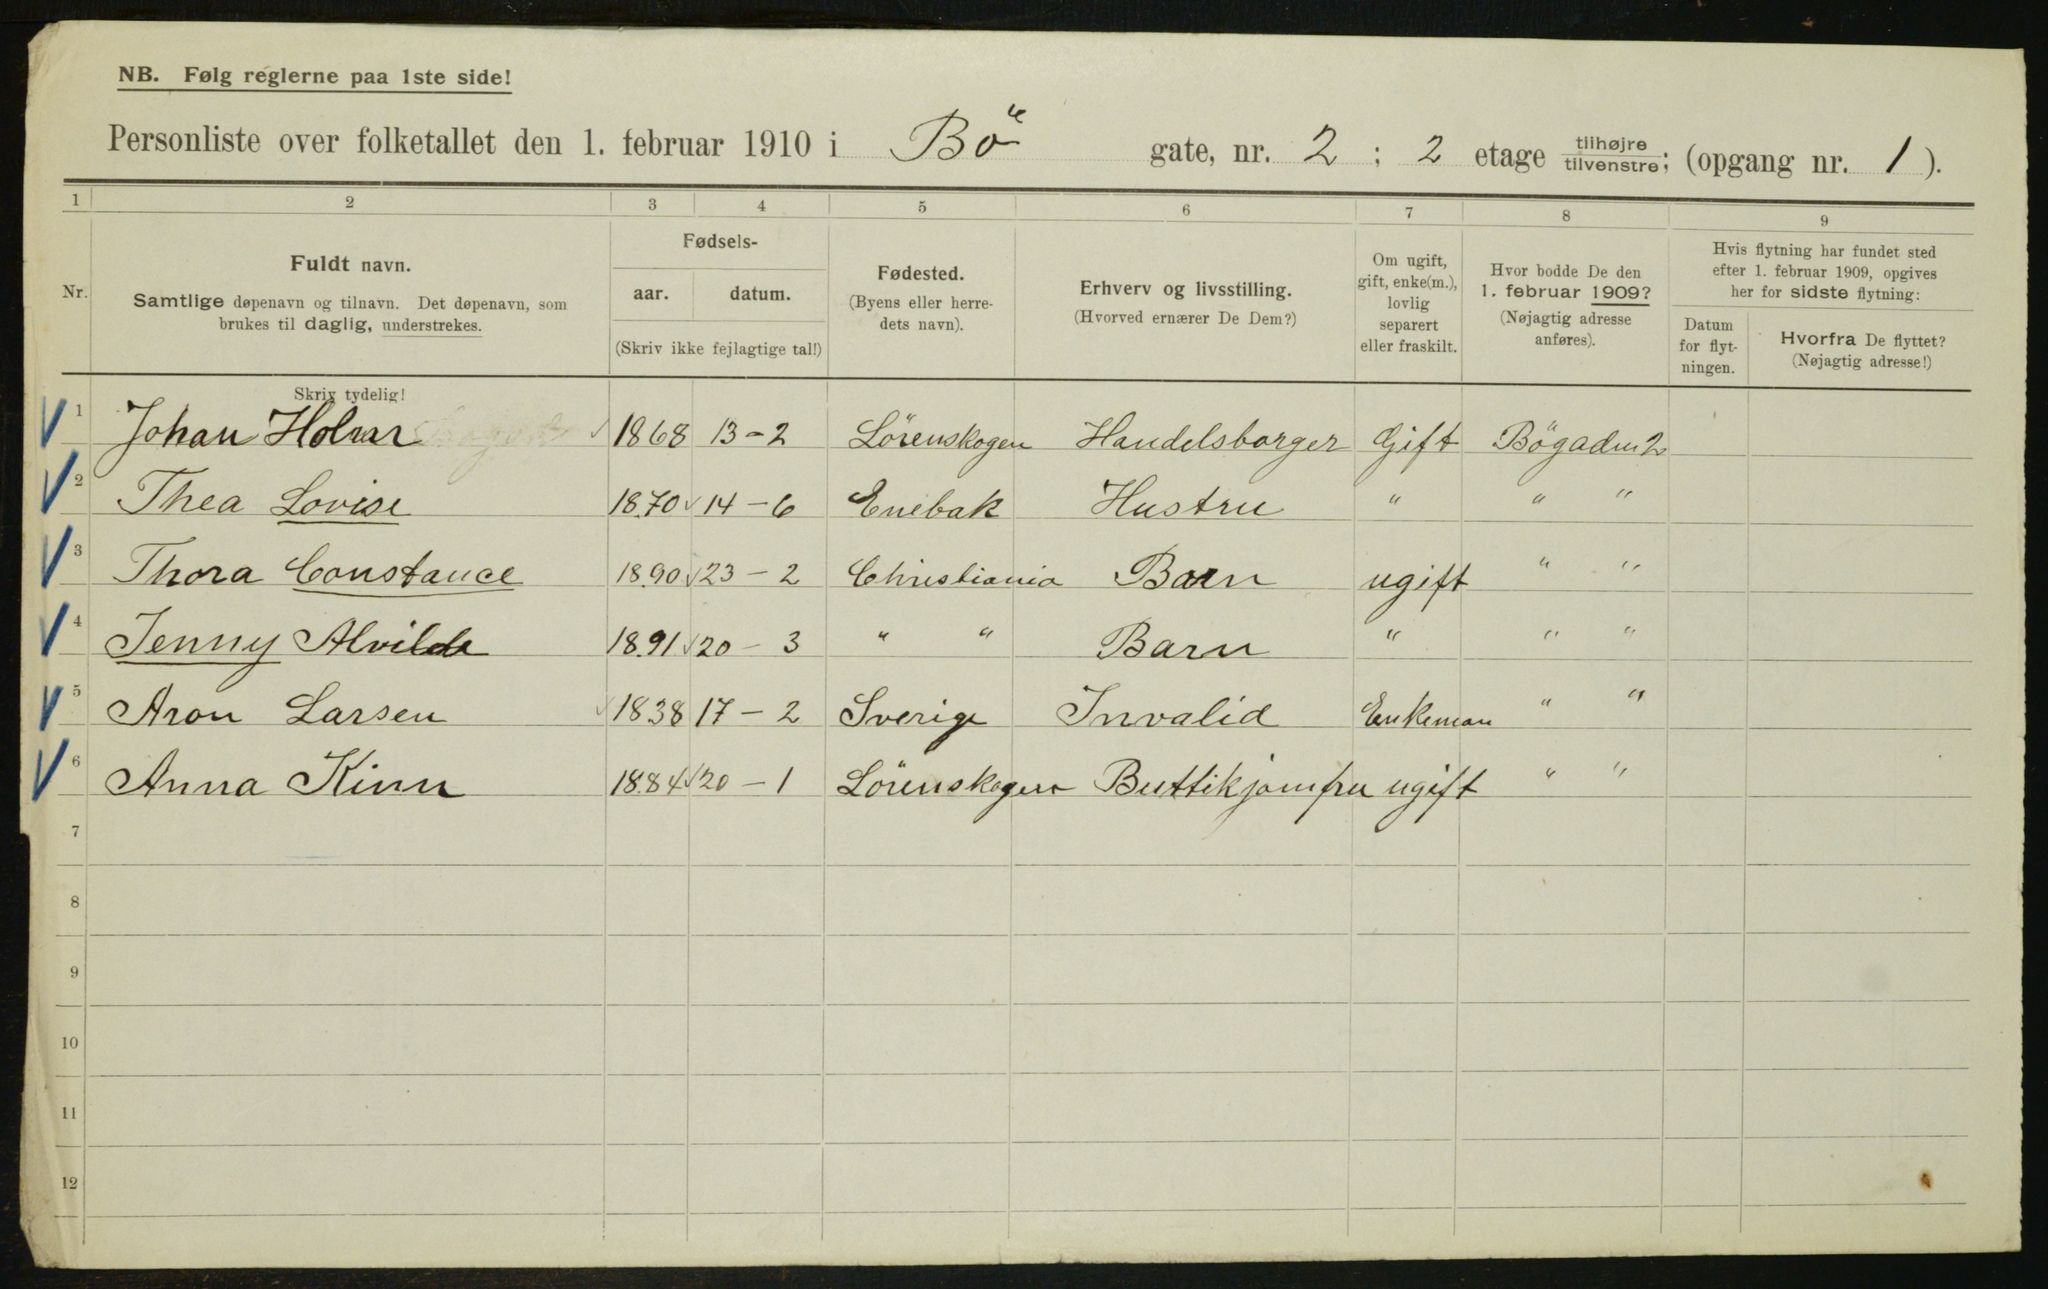 NB. Følg reglerne paa 1ste side!
Personliste over folketallet den 1. februar 1910 i Bö gate, nr. 2 ; 2 etage tilhøjre tilvenstre; (opgang nr. 1 ).
1 2 3 4 5 6 7 8 9
Nr.
Fuldt navn.
Samtlige døpenavn og tilnavn. Det døpenavn, som
brukes til daglig, understrekes.
Fødsels-
aar. datum.
(Skriv ikke fejlagtige tal!)
Fødested.
(Byens eller herre-
dets navn).
Erhverv og livsstilling.
(Hvorved ernærer De Dem?)
Om ugift,
gift, enke(m.),
lovlig
separert
eller fraskilt.
Hvor bodde De den
1. februar 1909?
(Nøjagtig adresse
anføres).
Hvis flytning har fundet sted
efter 1. februar 1909, opgives
her for sidste flytning:
Datum
for flyt-
ningen.
Hvorfra De flyttet?
(Nøjagtig adresse!)
Skriv tydelig!
1 Johan 1868 13-2 Lörenskogen Handelsborger Gift Bögaden 2
2 Thea Lovise 1870 14-6 Enebak Hustru " " "
3 Thora Constance 1890 23-2 Christiania Barn ugift " "
4 Jenny Alvilde 1891 20-3 " " Barn " " "
5 Aron Larsen 1838 17-2 Sverige Invalid Enkeman " "
6 Anna Kinn 1884 20-1 Lörenskogen Buttikjomfru ugift " "
7
8
9
10
11
12